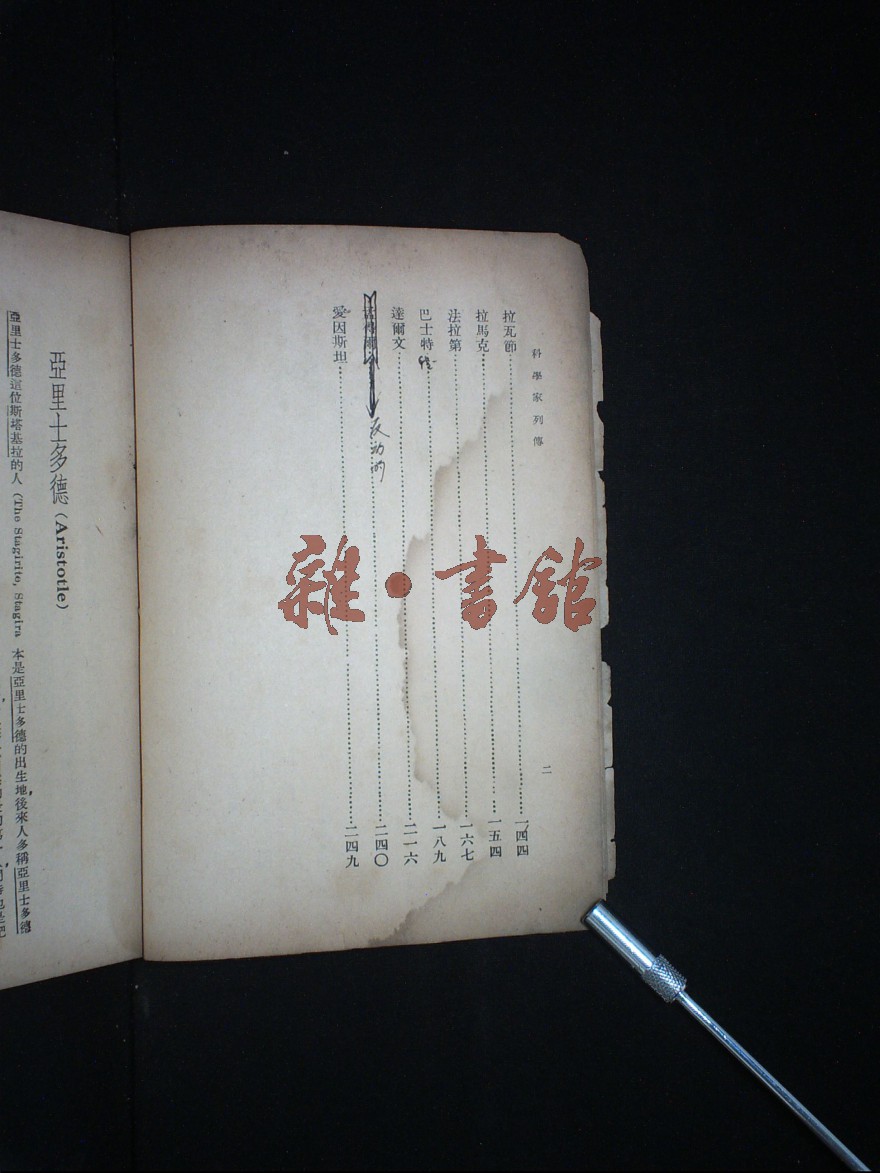 科學家列傳
二
拉瓦節……一四四
拉馬克……一五四
法拉第……一六七
巴士特……一八九
達爾文……二一六
……二四〇
反动的
愛因斯坦……二四九
亞里士多德(Aristotle)
亞里士多德這位斯塔基拉的人(The Stagirite, Stagira 本是亞里士多德的出生地,後來人多稱亞里士多德
雜·書館